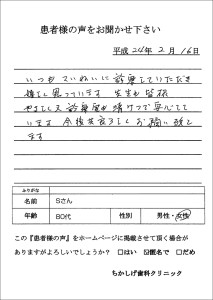 患者様の声をお聞かせ下さい
平成24年2月16日
いつもていねいに診療していただき
嬉しく思っています 先生も皆様
やさしくて 診療室が 明るくて 安心して
います 今後共よろしくお願い致し
ます
ふりがな
名前 Sさん
年齢 80代 性別 男性・女性
この『患者様の声』をホームページに掲載させて頂く場合が
ありますがよろしいでしょうか? □はい ☑匿名で □だめ
ちかしげ歯科クリニック